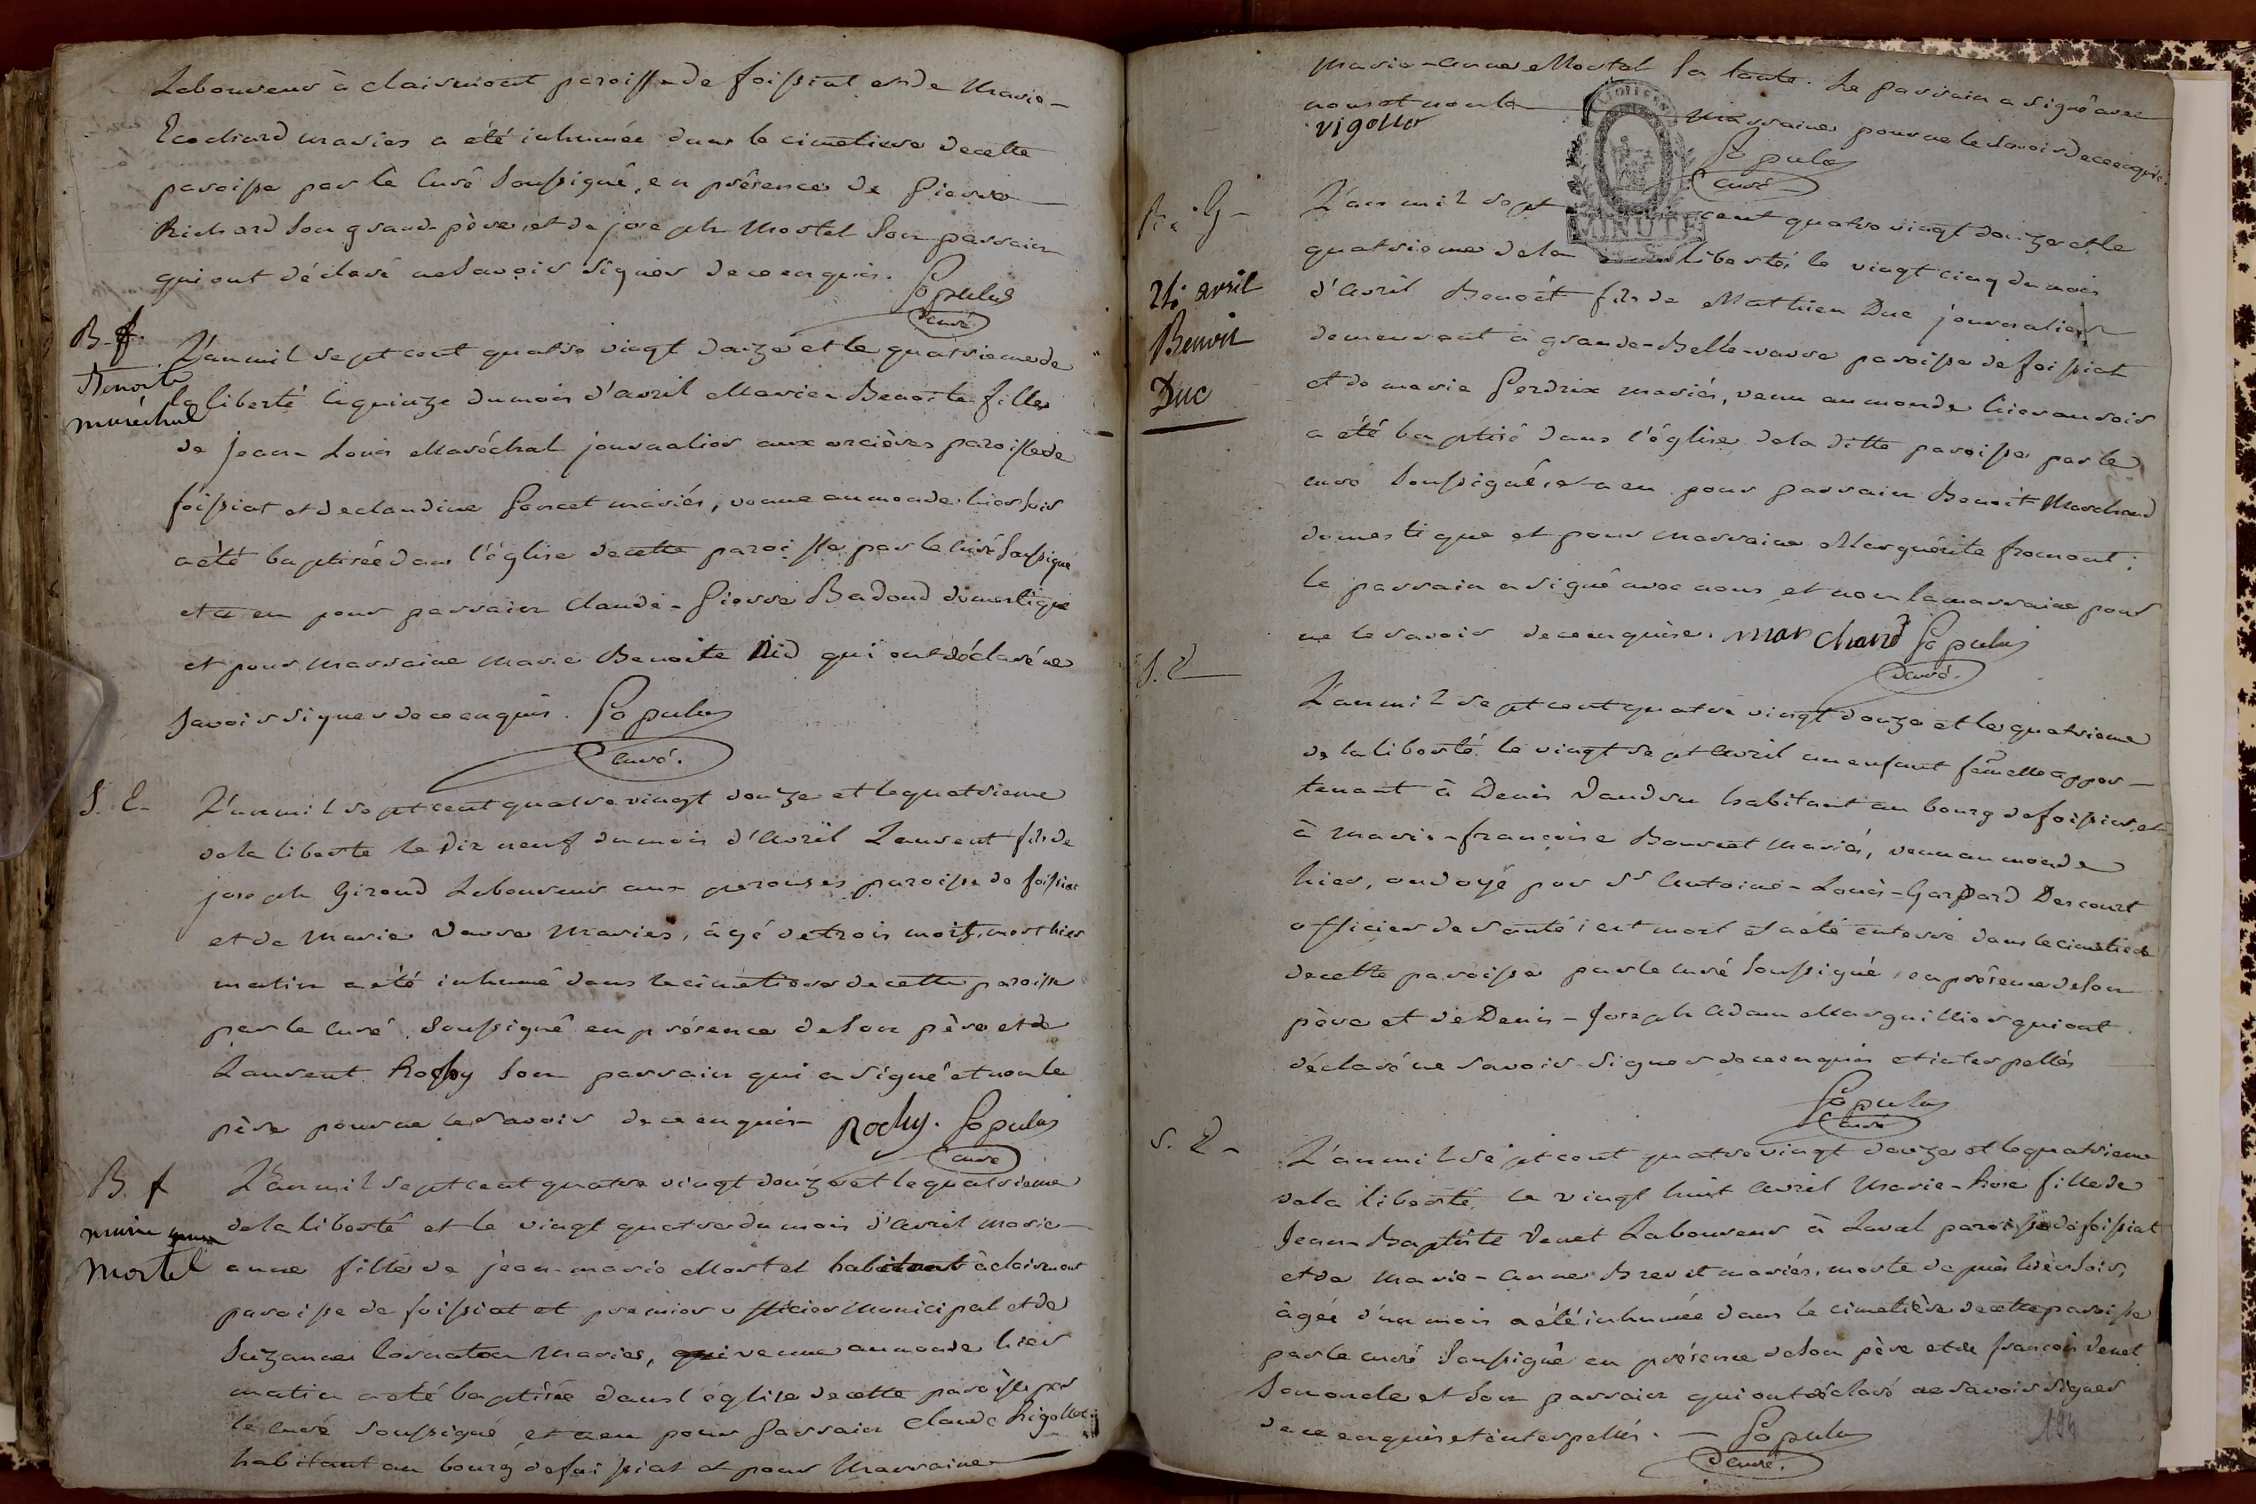 Laboureur à claismont paroisse de foissiat et de Marie
Ecochard mariés a été inhumée dans le cimetiere de cette
paroisse par le Curé soussigné, en présence de Pierre
Richard son grand-père, et de joseph Mostel son parrain
qui ont déclaré ne savoir signer de ce enquis. Populus
curé
B. f.
Benoite
maréchal
L'an mil sept cent quatre vingt douze et le quatrieme de
la liberté le quinze du mois d'avril Marie Benoite fille
de jean Louis Maréchal journalier aux orcières paroisse de
foissiat et de claudine Poncet mariés, venue au monde hier soir
a été baptisée dans l'église de cette paroisse par le Curé soussigné
et a eu pour parrain Claude-Pierre Badoud domestique
et pour marraine marie Benoite Nid qui ont déclaré ne
savoir signer de ce enquis. Populus
curé.
S. E.
L'an mil sept cent quatre vingt douze et le quatrieme
de la liberté le dix neuf du mois d'avril Laurent fils de
joseph Giroud Laboureur aux perouses paroisse de foissiat
et de Marie Vavre Mariés, âgé de trois mois, mort hier
matin a été inhumé dans le cimetiere de cette paroisse
par le Curé soussigné en présence de son père et de
Laurent Rochy son parrain qui a signé et non le
père pour ne le savoir de ce enquis Rochy. Populus
curé
B. f
marie anne
Mortel
L'an mil sept cent quatre vingt douze et le quatrieme
de la liberté et le vingt quatre du mois d'avril Marie-
anne fille de jean-marie Mortel habitant à claismont
paroisse de foissiat et premier officier Municipal et de
Suzanne Mariés, venue au monde hier
matin a été baptisée dans l'église de cette paroisse par
le curé soussigné, et a eu pour Parrain Claude Rigollet
habitant au bourg de foissiat et pour Marraine
Marie-anne Mortel sa tante. Le parrain a signé avec
nous et non la marraine pour ne le savoir de ce enquise.
vigollet Populus
curé
MINUTE
B. G
25 avril
Benoit
Duc
L'an mil sept cent quatre vingt douze et le
quatrieme de la liberté le vingt cinq du mois
d'avril Benoit fils de Mathieu Duc journalier
demeurant à grande-Belle-vavre paroisse de foissiat
et de marie Perdrix mariés, venu au monde hier au soir
a été baptisé dans l'église de la ditte paroisse par le
curé soussigné, et a eu pour parrain Benoit Marchand
domestique et pour marraine Marguerite fromont;
le parrain a signé avec nous et non la marraine pour
ne le savoir de ce enquise. marchand Populus
curé.
S. E
L'an mil sept cent quatre vingt douze et le quatrieme
de la liberté le vingt sept avril un enfant femelle appar-
tenant à Denis Vaudru habitant au bourg de foissiat, et
à Marie-françoise Bouvet Mariés, venu au monde
hier, ondoyé par Sr Antoine-Louis-Gaspard Descourt
officier de santé; est mort et a été enterré dans le cimetiere
de cette paroisse par le curé soussigné, en présence de son
père et de Denis-Joseph Adam Marguillier qui ont
déclaré ne savoir signer de ce enquis et interpellés
Populus
curé
S. E
L'an mil sept cent quatre vingt douze et le quatrieme
de la liberté, le vingt huit avril Marie-Rose fille de
Jean-Baptiste Venet Laboureur à Laval paroisse de foissiat
et de Marie-Anne Brevet mariés, morte depuis hier soir,
âgée d'un mois a été inhumée dans le cimetière de cette paroisse
par le curé soussigné en présence de son père et de françois Venet
son oncle et son parrain qui ont déclaré ne savoir signer
de ce enquis et interpellés. Populus
curé.
194